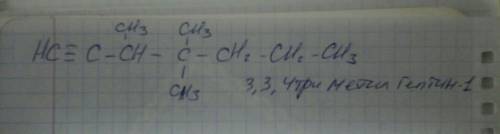 CH₃ CH₃
HC≡C–CH–C–CH₂–CH₂–CH₃
CH₃
3,3,4 три метил гептин-1